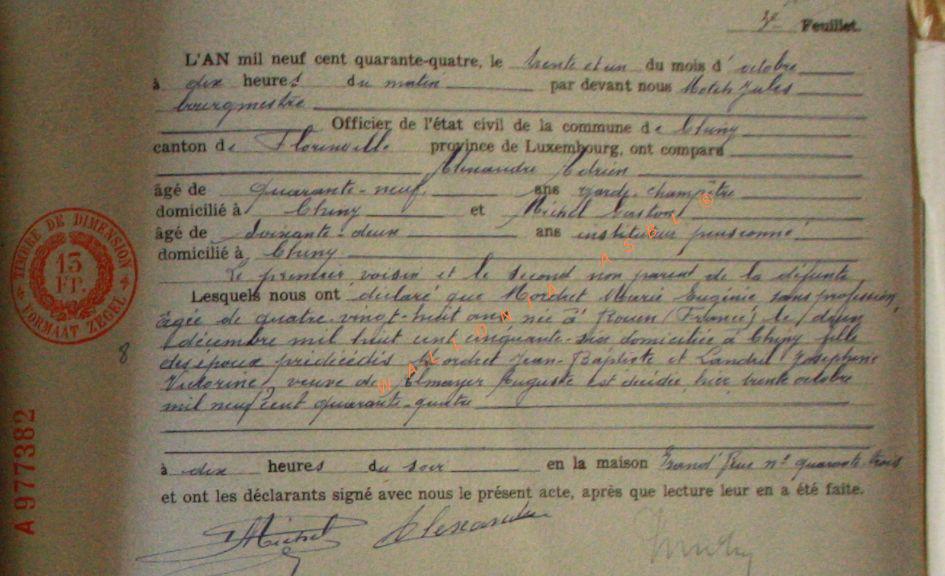 3e Feuillet.
L'AN mil neuf cent quarante-quatre, le trente et un du mois d'octobre
à dix heures du matin par devant nous Jules
bourgmestre
Officier de l'état civil de la commune de Chiny
canton de Florenville province de Luxembourg, ont comparu
Alexandre Adrien
âgé de quarante-neuf ans garde-champêtre
domicilié à Chiny et Michel Gaston
âgé de soixante-deux ans instituteur pensionné
domicilié à Chiny
Le premier voisin et le second non parent de la défunte
Lesquels nous ont déclaré que Marie Eugénie sans profession,
âgée de quatre-vingt-huit ans née à Rouen (France) le
décembre mil huit cent cinquante-six domiciliée à Chiny fille
des époux prédécédés Jean-Baptiste et Landru Joséphine
Victorine, veuve de Auguste est décédée hier trente octobre
mil neuf cent quarante-quatre
à dix heures du soir en la maison Grand'Rue n° quarante-trois
et ont les déclarants signé avec nous le présent acte, après que lecture leur en a été faite.
Michel Alexandre
TIMBRE DE DIMENSION
13
FR.
FORMAAT ZEGEL
8
A 977382
WALLONIA ASBL ©